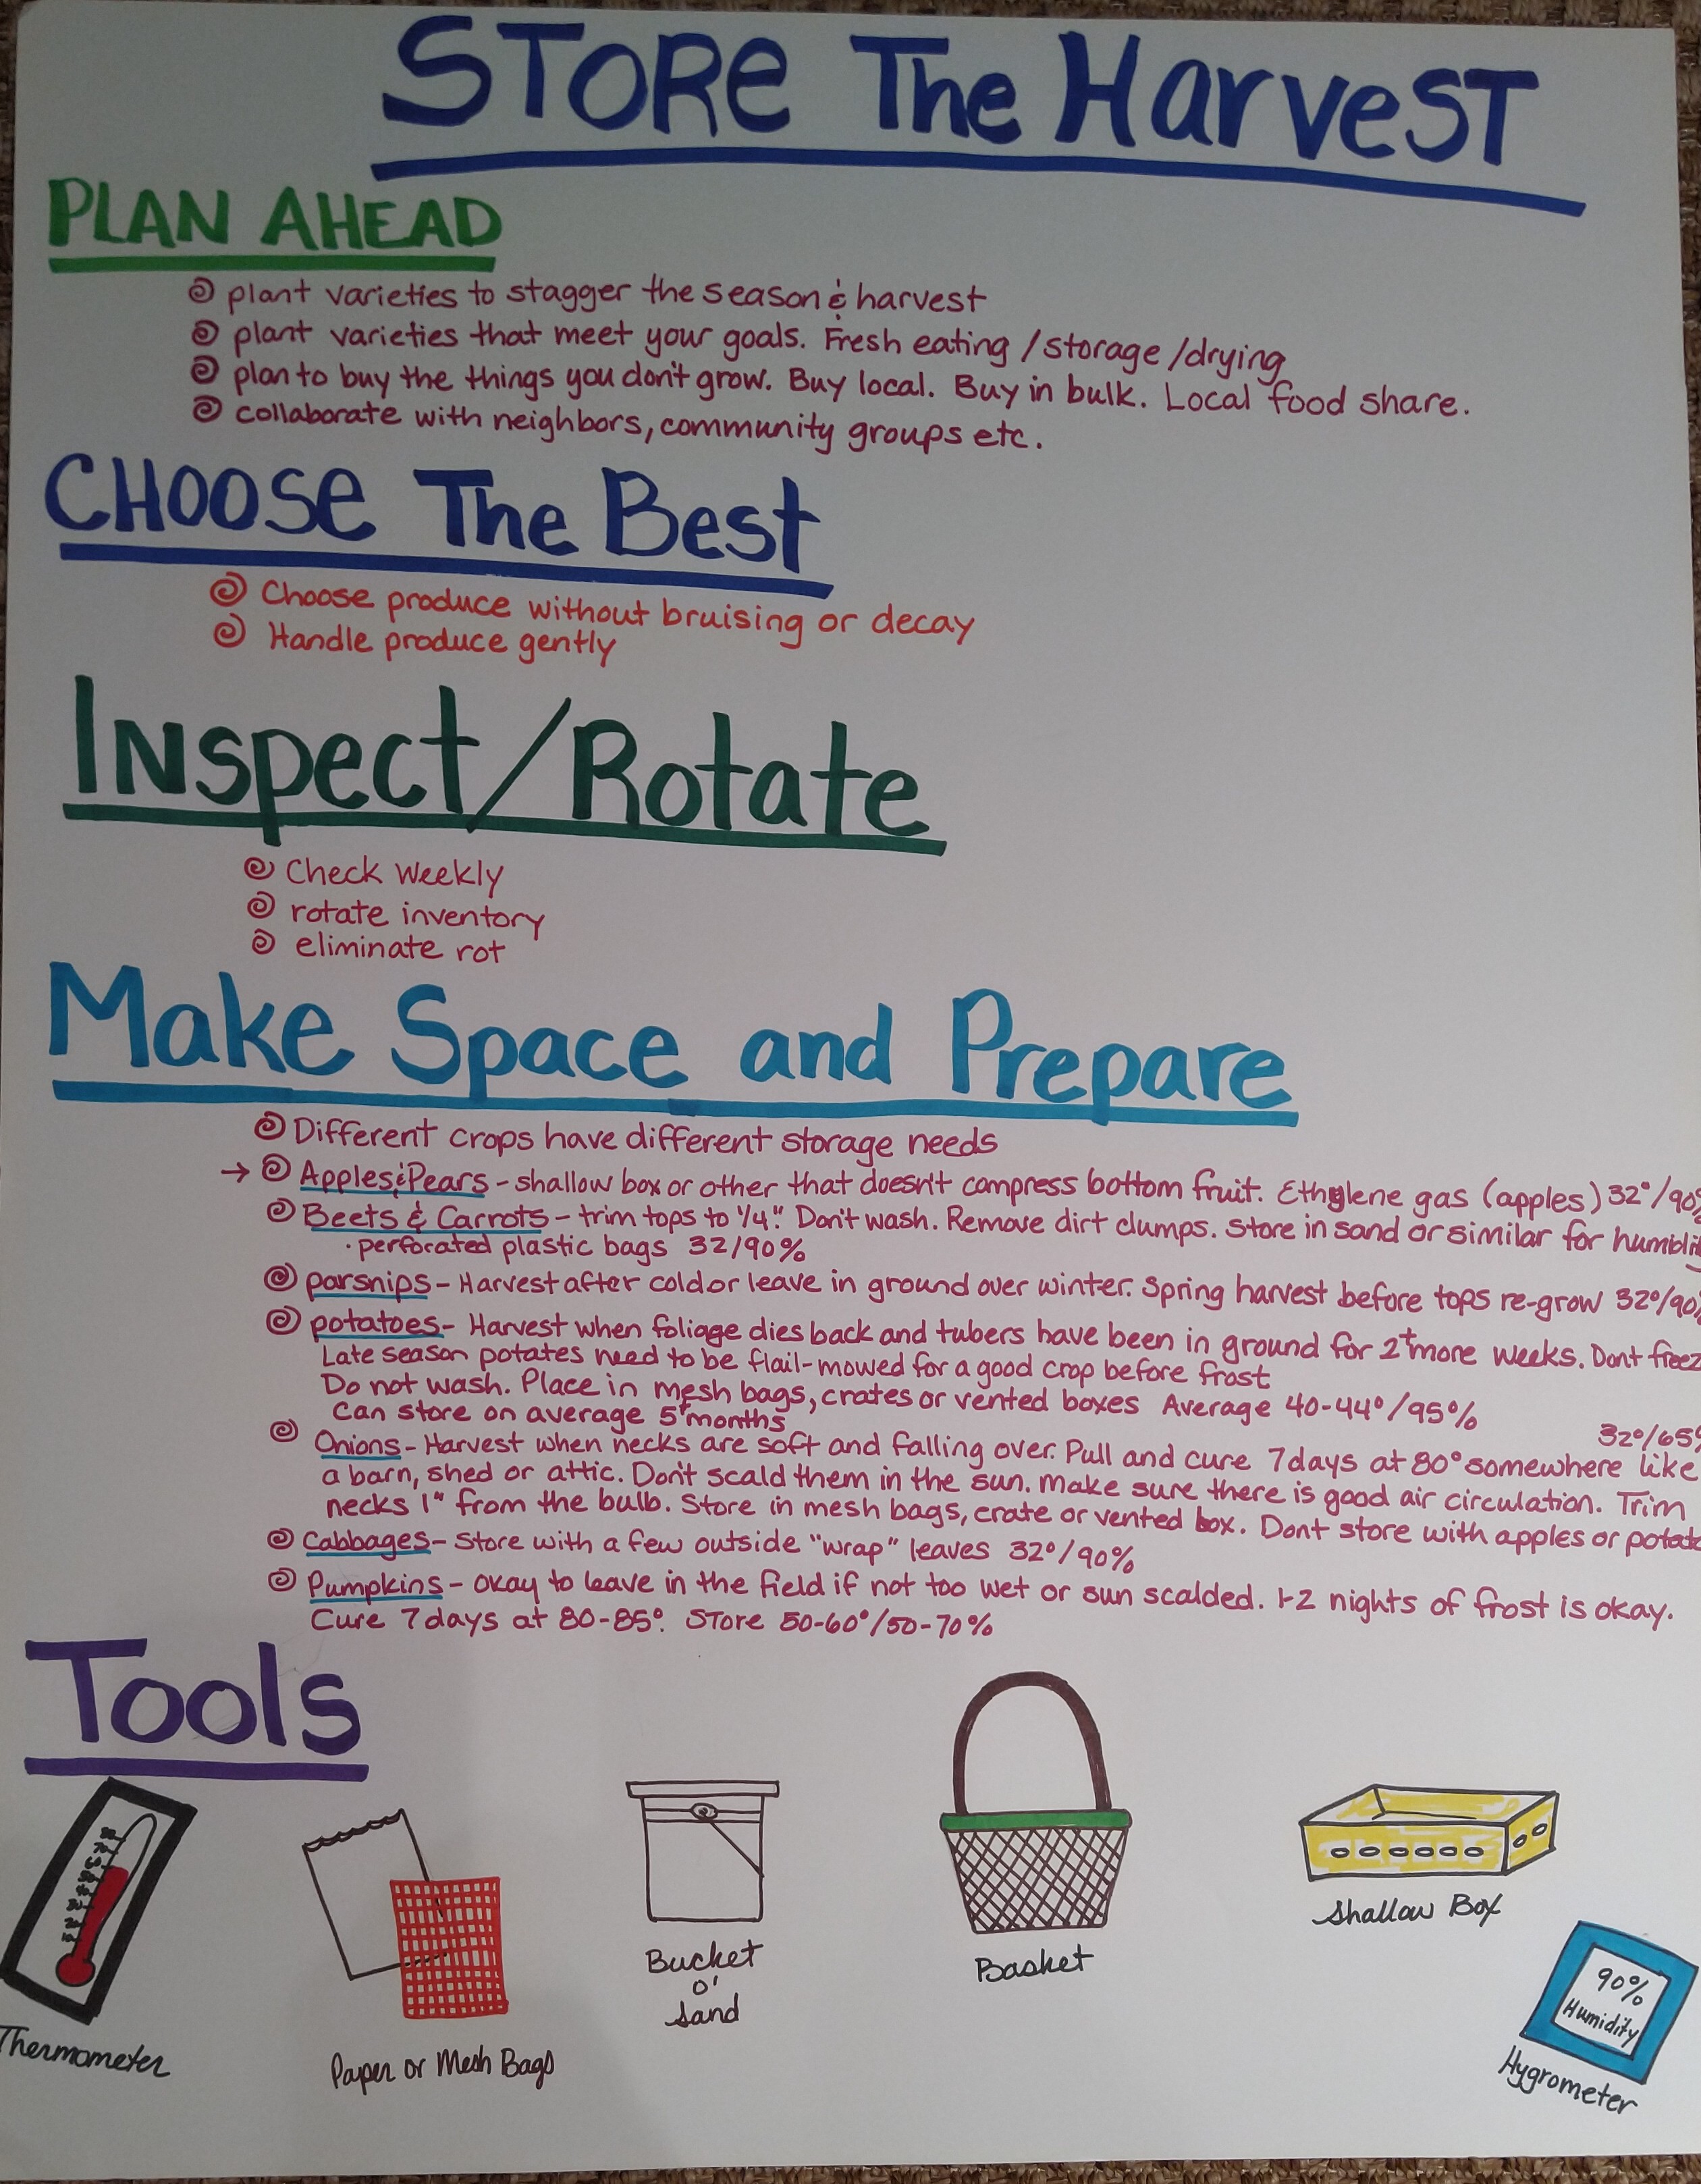 STORE The Harvest
PLAN AHEAD
plant varieties to stagger the season & harvest
plant varieties that meet your goals. Fresh eating / storage / drying
plan to buy the things you don't grow. Buy local. Buy in bulk. Local food share.
collaborate with neighbors, community groups etc.
CHOOSe The Best
Choose produce without bruising or decay
Handle produce gently
INspect/Rotate
Check Weekly
rotate inventory
eliminate rot
Make Space and Prepare
Different crops have different storage needs
→ Apples & Pears - shallow box or other that doesn't compress bottom fruit. Ethylene gas (apples) 32°/90%
Beets & Carrots - trim tops to 1/4". Don't wash. Remove dirt clumps. Store in sand or similar for
· perforated plastic bags 32/90%
parsnips - Harvest after cold or leave in ground over winter. Spring harvest before tops re-grow 32°/90%
potatoes - Harvest when foliage dies back and tubers have been in ground for 2+ more weeks. Dont freez
Late season potates need to be flail-mowed for a good crop before frost
Do not wash. Place in mesh bags, crates or vented boxes Average 40-44°/95%
Can store on average 5+ months
32°/65%
Onions - Harvest when necks are soft and falling over. Pull and cure 7 days at 80° somewhere like
a barn, shed or attic. Don't scald them in the sun. Make sure there is good air circulation. Trim
necks 1" from the bulb. Store in mesh bags, crate or vented box. Dont store with apples or potato
Cabbages - Store with a few outside "wrap" leaves 32°/90%
Pumpkins - Okay to leave in the field if not too wet or sun scalded. 1-2 nights of frost is okay.
Cure 7 days at 80-85°. Store 50-60°/50-70%
Tools
Thermometer
Paper or Mesh Bags
Bucket
O'
Sand
Basket
Shallow Box
90%
Humidity
Hygrometer